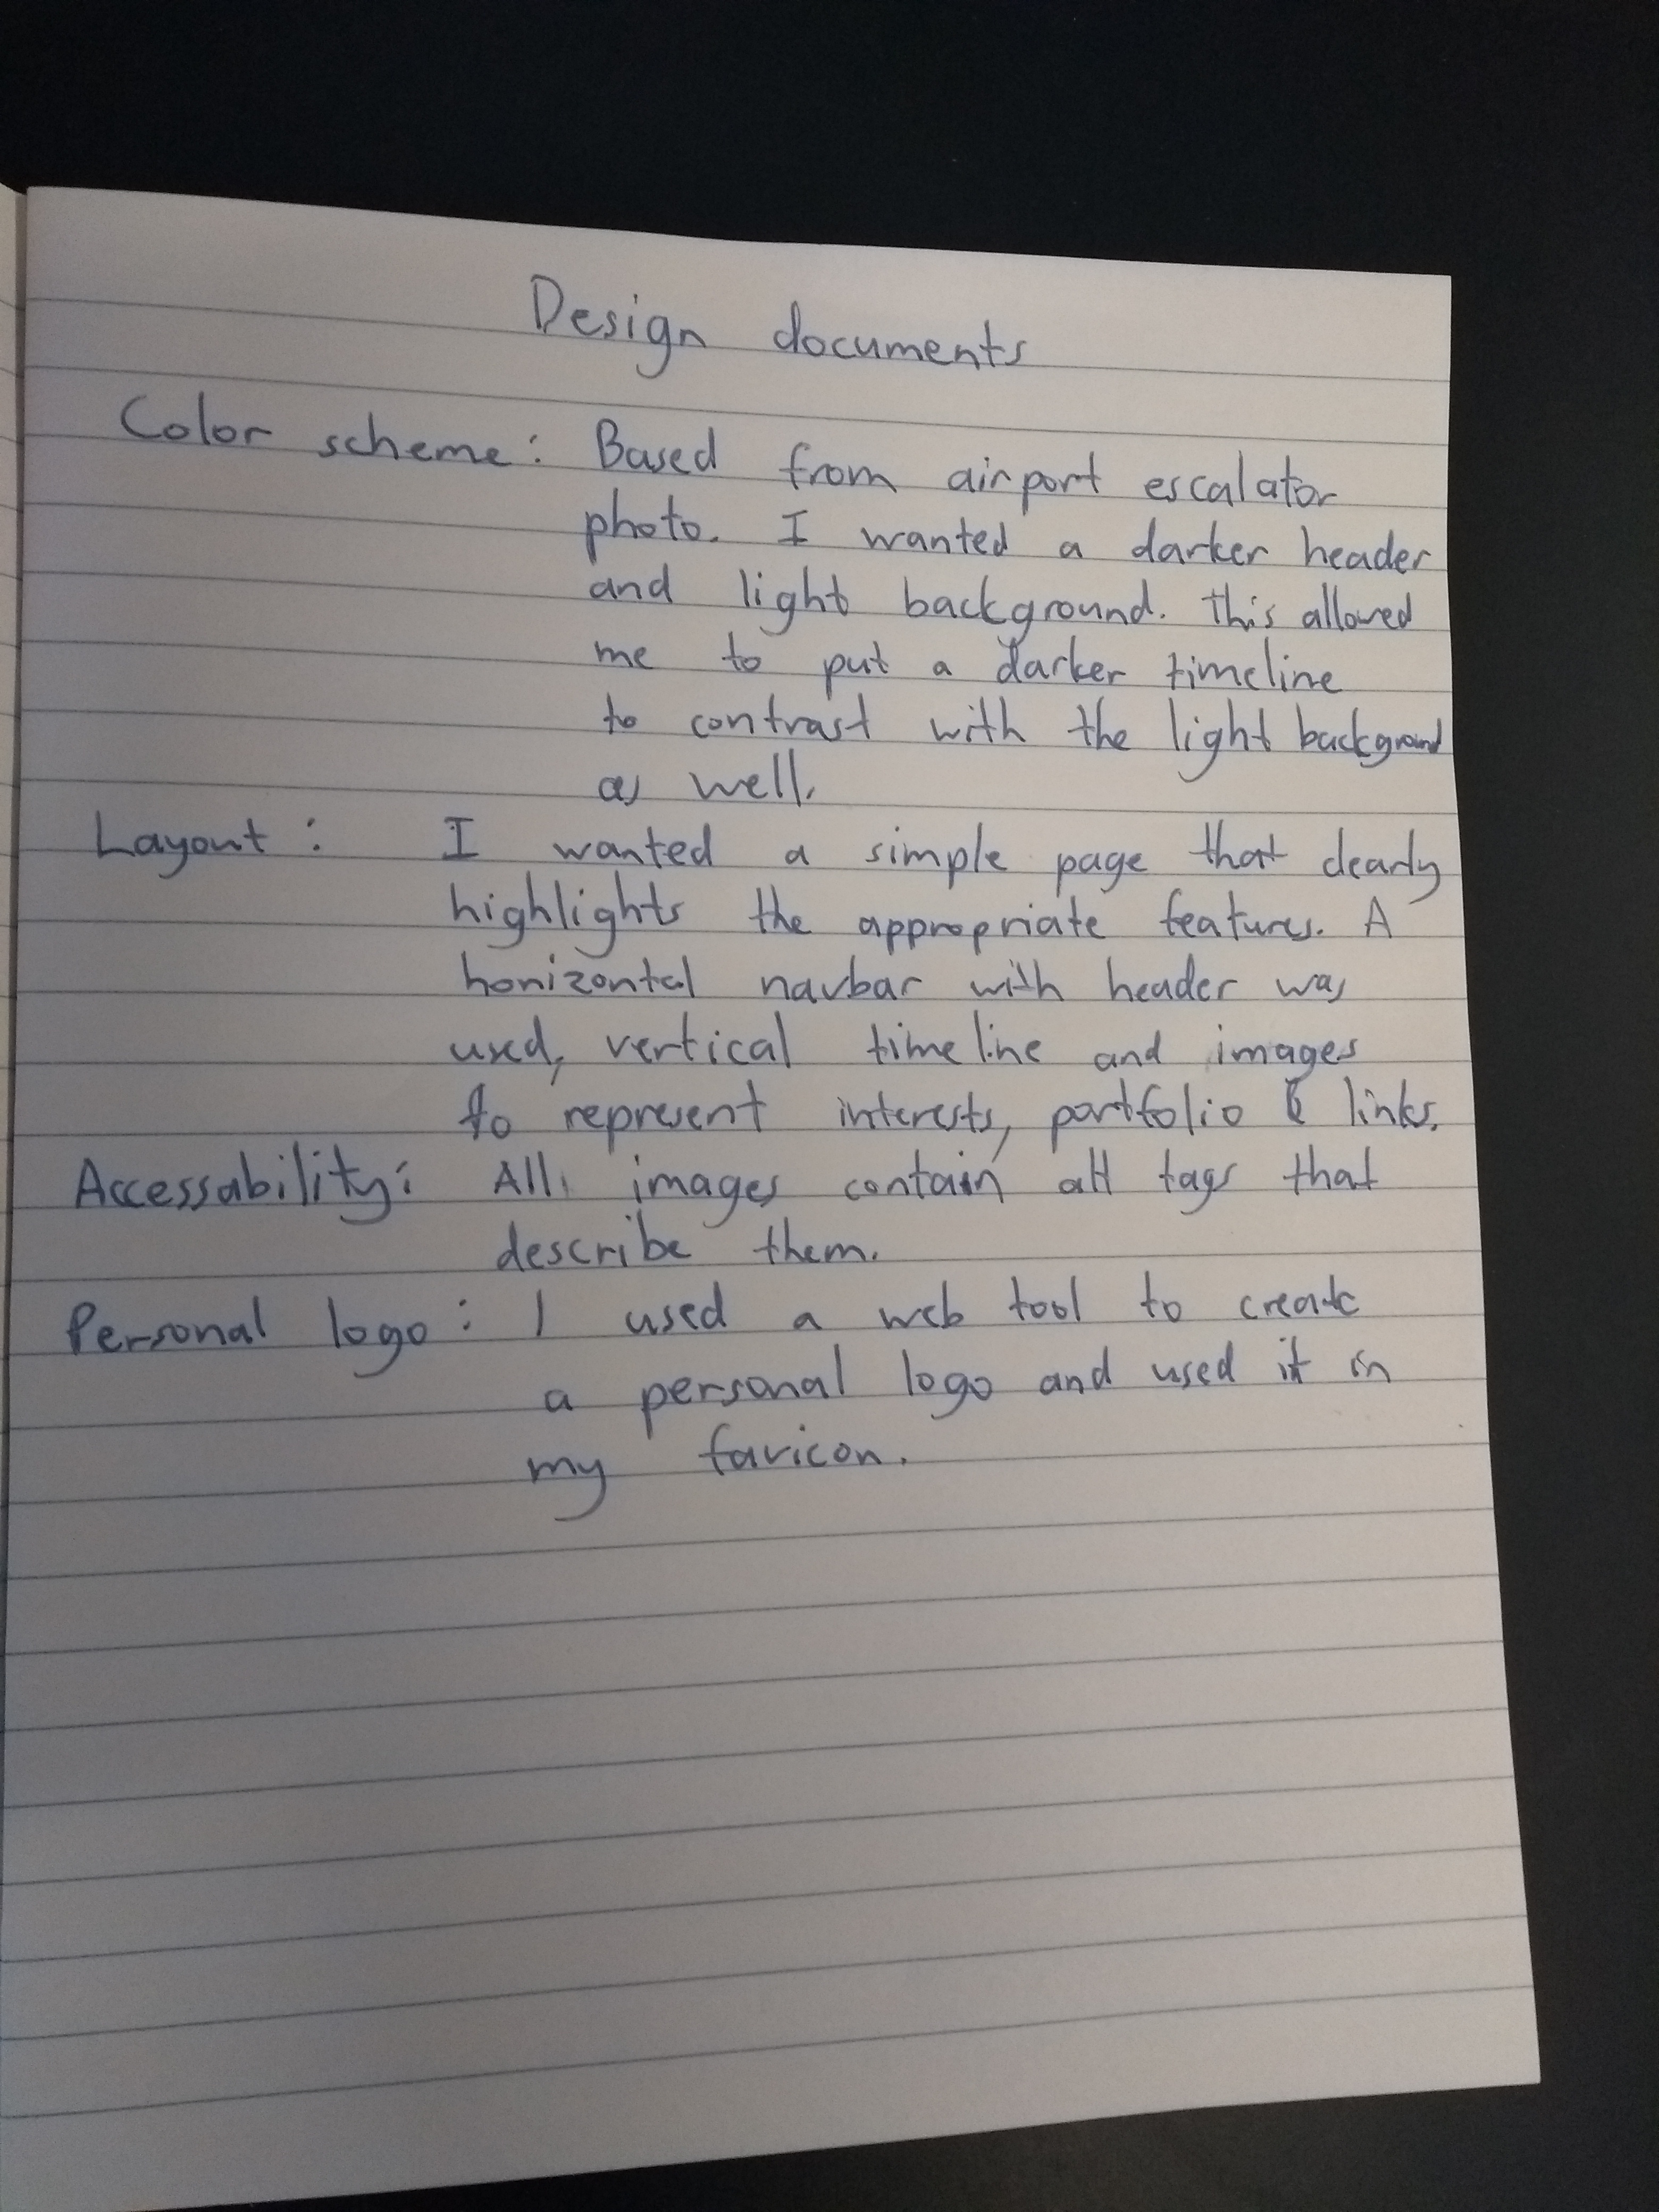 Design documents
Color scheme: Based from airport escalator
photo. I wanted a darker header
and light background. This allowed
me to put a darker timeline
to contrast with the light background
as well.
Layout: I wanted a simple page that clearly
highlights the appropriate features. A
horizontal navbar with header was
used, vertical timeline and images
to represent interests, portfolio & links.
Accessability: All images contain alt tags that
describe them.
Personal logo: I used a web tool to create
a personal logo and used it in
my favicon.